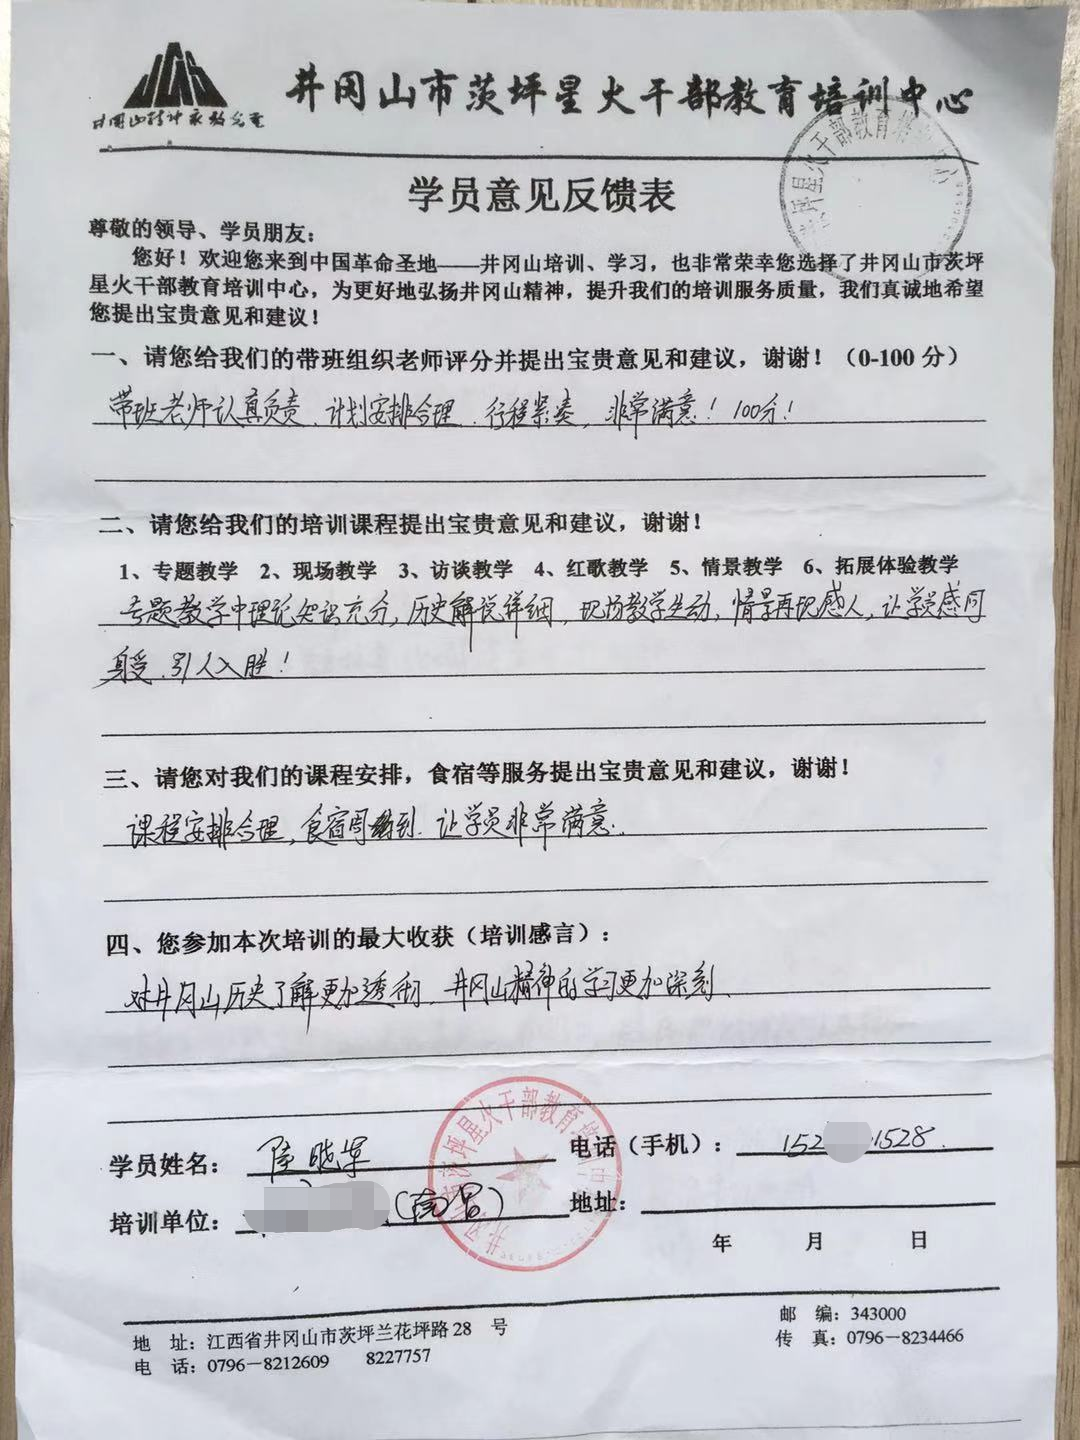 井冈山市茨坪星火干部教育培训中心
学员意见反馈表
尊敬的领导、学员朋友:
您好!欢迎您来到中国革命圣地——井冈山培训、学习,也非常荣幸您选择了井冈山市茨坪
星火干部教育培训中心,为更好地弘扬井冈山精神,提升我们的培训服务质量,我们真诚地希望
您提出宝贵意见和建议!
一、请您给我们的带班组织老师评分并提出宝贵意见和建议,谢谢!(0-100分)
带班老师认真负责、计划安排合理、行程紧凑,非常满意!100分!
二、请您给我们的培训课程提出宝贵意见和建议,谢谢!
1、专题教学 2、现场教学 3、访谈教学 4、红歌教学 5、情景教学 6、拓展体验教学
专题教学中理论知识充分,历史解说详细,现场教学生动,情景再现感人,让学员感同
身受、引人入胜!
三、请您对我们的课程安排,食宿等服务提出宝贵意见和建议,谢谢!
课程安排合理,食宿周到.让学员非常满意.
四、您参加本次培训的最大收获(培训感言):
对井冈山历史了解更加透彻.井冈山精神的学习更加深刻.
学员姓名: 晓军
电话(手机):152 1528.
培训单位: (南昌)
地址:
年 月 日
地 址:江西省井冈山市茨坪兰花坪路28 号
邮 编:343000
电 话:0796-8212609 8227757
传 真:0796-8234466